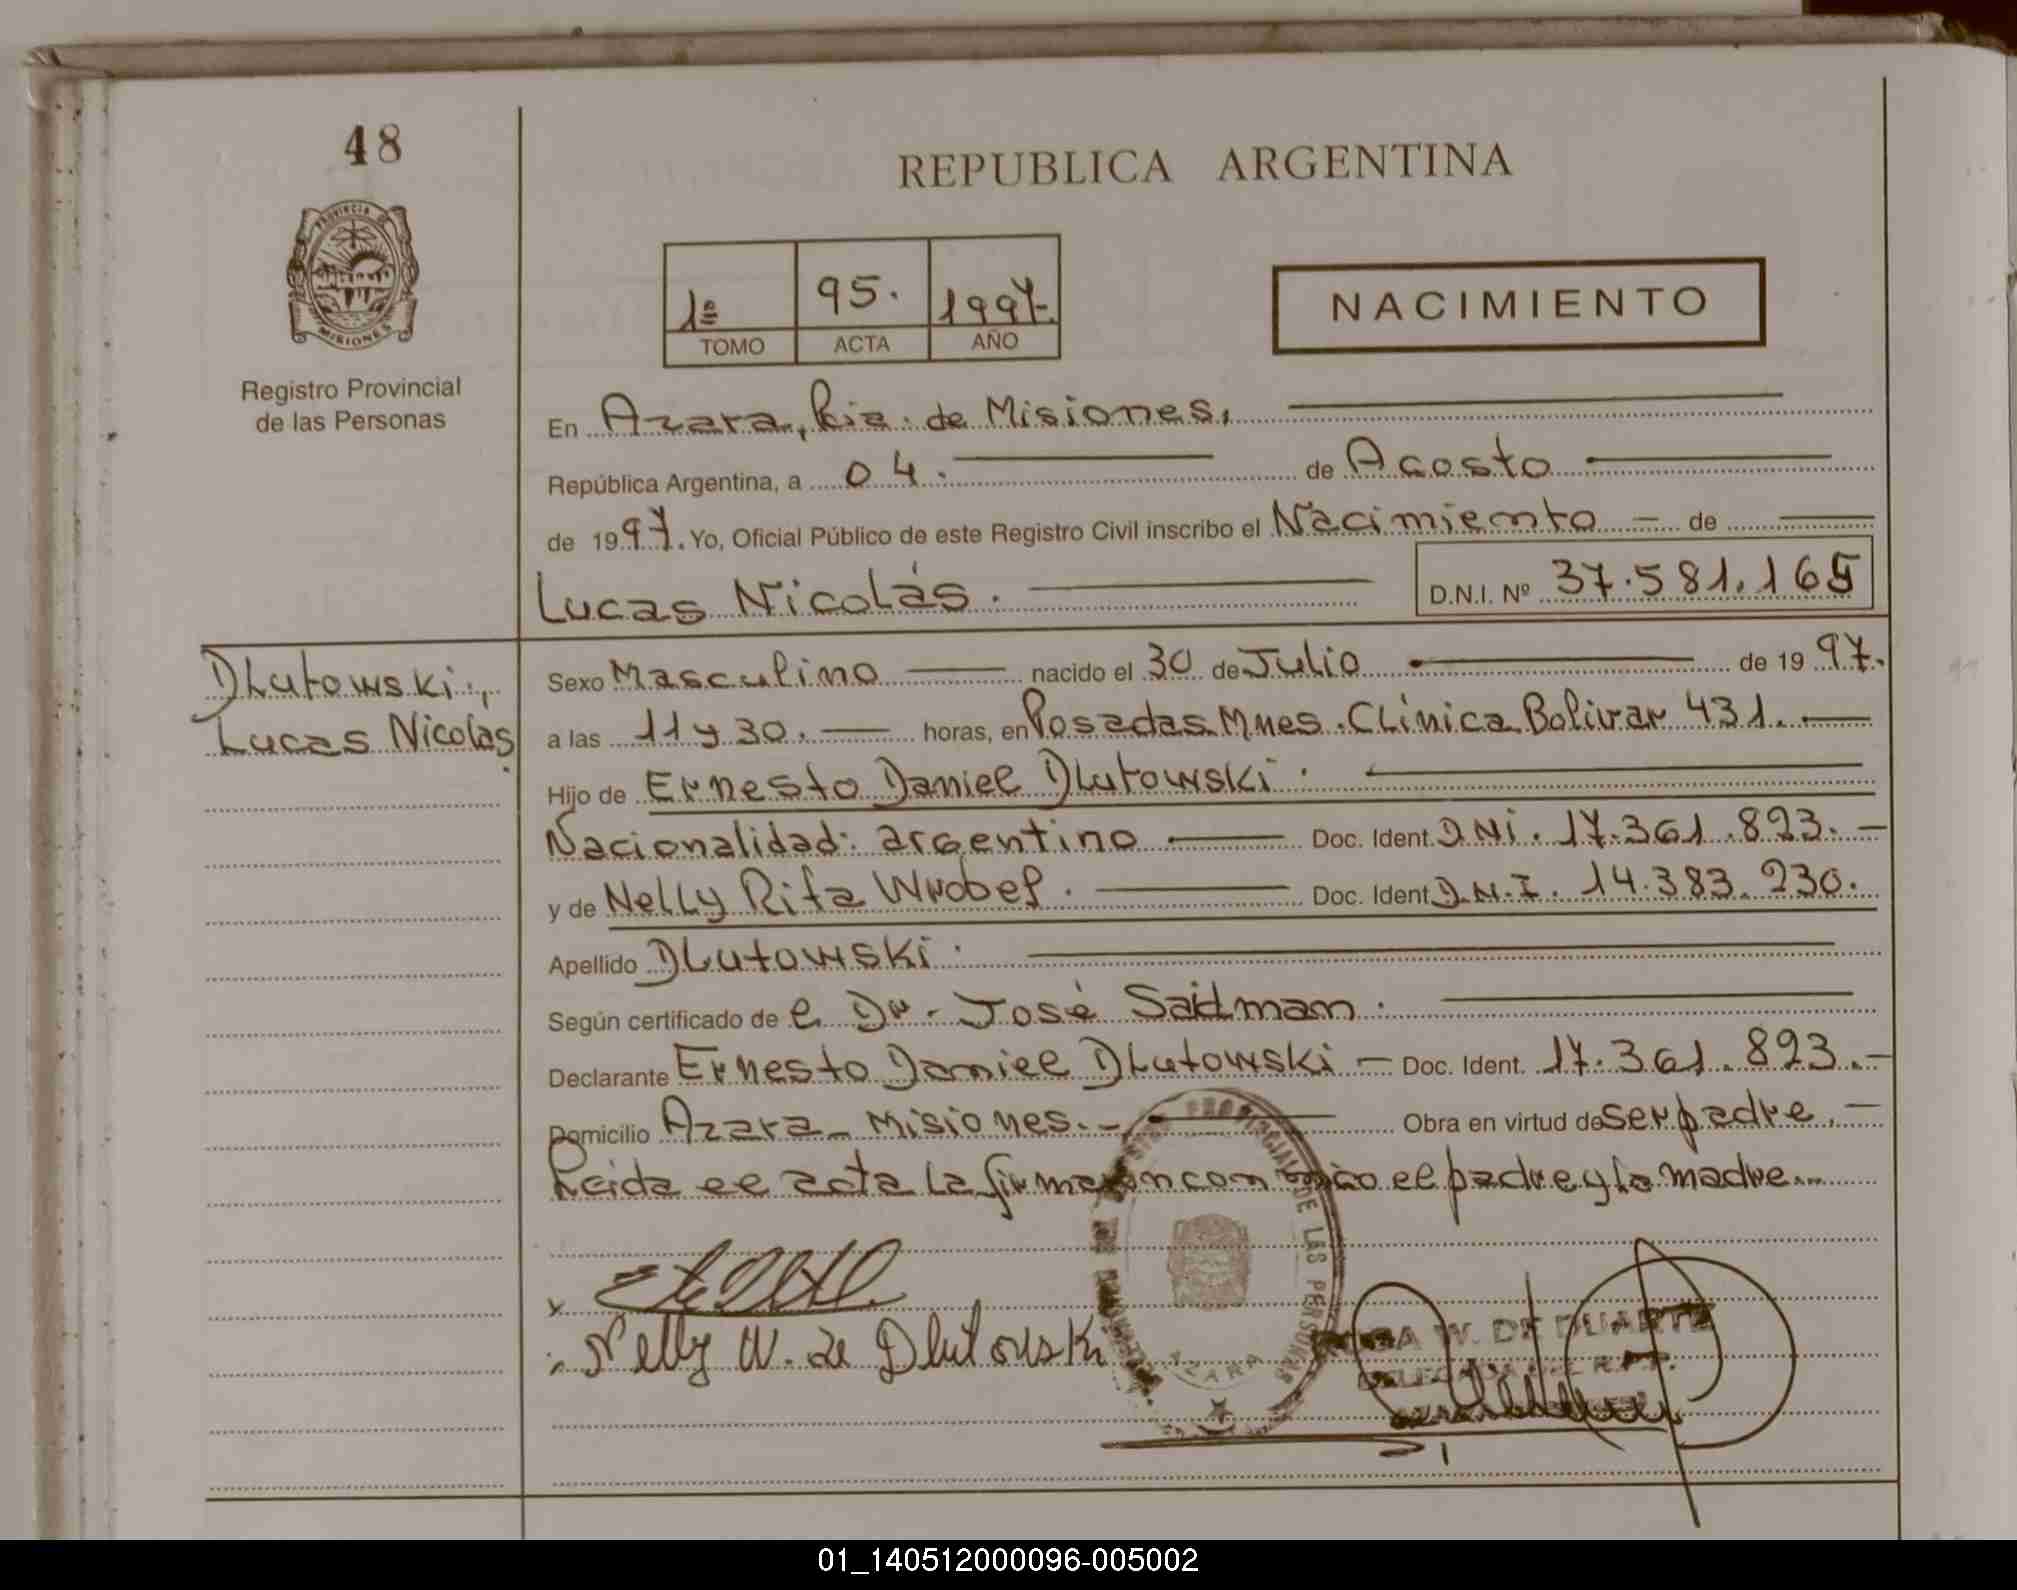 48
REPUBLICA ARGENTINA
PROVINCIA DE MISIONES
1º 95. 1997.
TOMO ACTA AÑO
NACIMIENTO
Registro Provincial
de las Personas
En Azara, Pcia. de Misiones.
República Argentina, a 04. de Agosto
de 1997. Yo, Oficial Público de este Registro Civil inscribo el Nacimiento de
Lucas Nicolás. D.N.I. Nº 37.581.165
DLutowski.,
Lucas Nicolas.
Sexo Masculino nacido el 30 de Julio de 1997.
a las 11 y 30. horas, en Posadas Mnes. Clínica Bolivar 431.
Hijo de Ernesto Daniel DLutowski.
Nacionalidad: argentino Doc. Ident. DNI. 17.361.823.
y de Nelly Rita Wrobel. Doc. Ident. D.N.I. 14.383.230.
Apellido DLutowski.
Según certificado de el Dr. José Saidman.
Declarante Ernesto Daniel DLutowski Doc. Ident. 17.361.823.
Domicilio Azara - Misiones. Obra en virtud de ser padre.
Leida el acta la firmaron con el padre y la madre.
Nelly W. de Dlutowski
PROVINCIAL DE LAS PERSONAS
AZARA
W. DE DUARTE
01_140512000096-005002